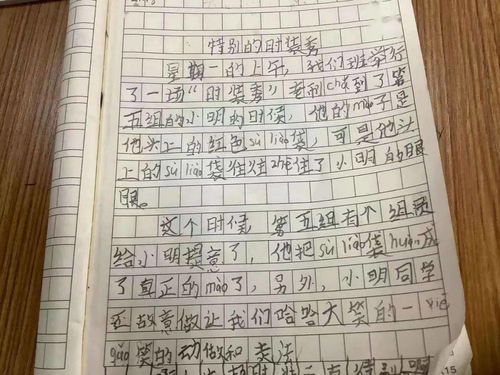 特别的时装秀
星期一的上午，我们班举行
了一场"时装秀"。轮到了第
五组的小明的时候，他的mào子是
他头上的红色sù liào袋，可是他头
上的sù liào袋往往zhē住了小明的眼
眼。
这个时候，第五组有个组员
给小明提意了，他把sù liào袋huàn成
了真正的mào了，另外，小明同学
还故意做让我们哈哈大笑的一xiē
gǎo笑的动做和表